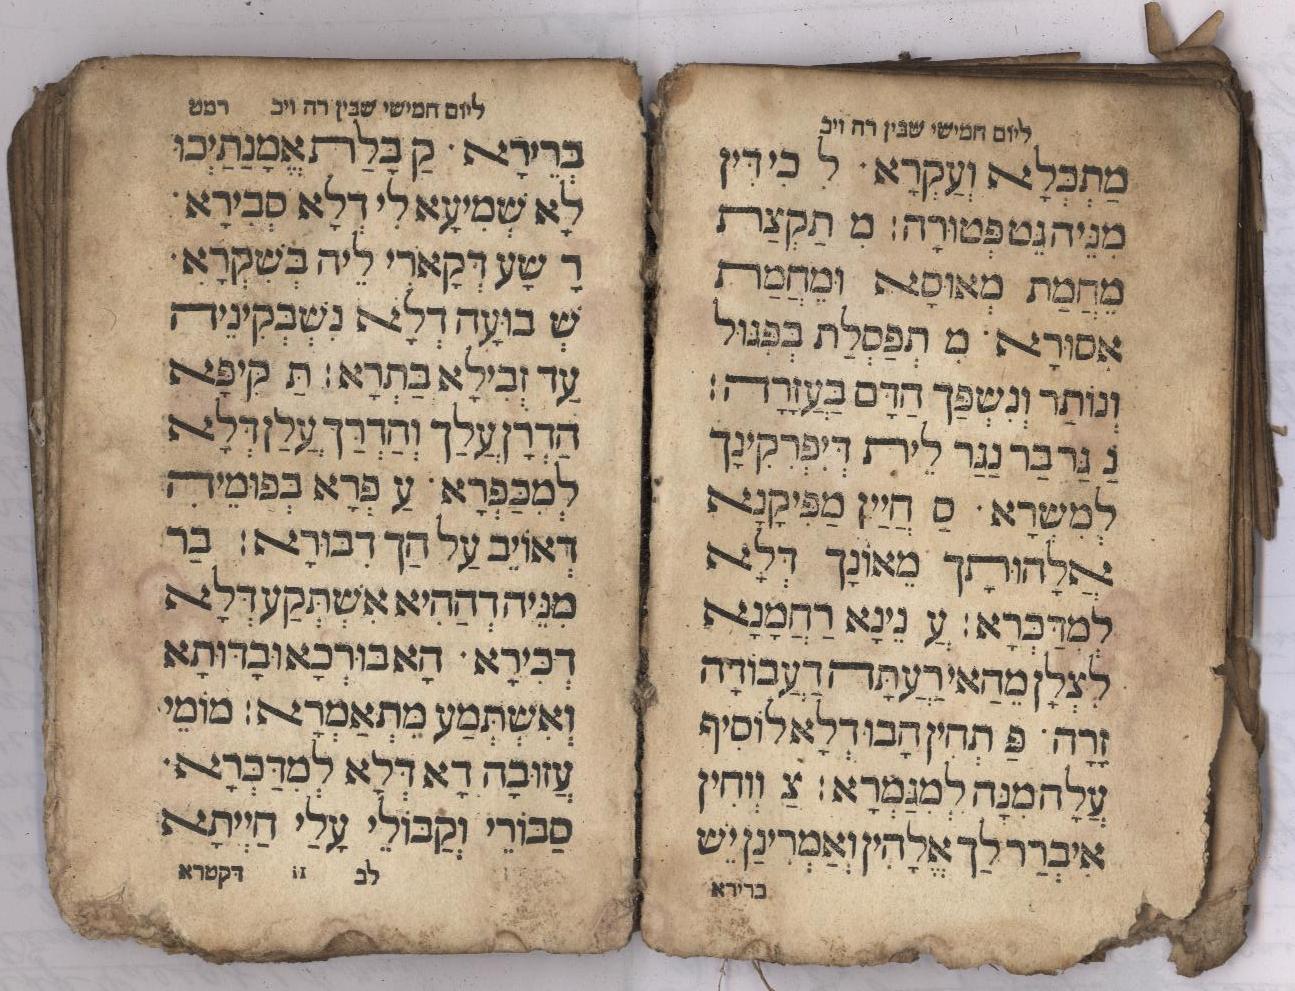 ליום חמישי שבין רה ויכ
מַתְכְּלָא וְעַקְרָא · ל כִי דִין
מִנֵּיהּ גֵּט פְּטוּרָה : מִ תַקְצַת
מֵחֲמַת מְאוּסָא וּמֵחֲמַת
אִסוּרָא · מִ תְפַּסְלַת בְּפִגּוּל
וְנוֹתַר וְנִשְׁפַּךְ הַדָּם בַּעֲזָרָה :
נַ גַּר בַּר נַגַּר לֵית דְּיִפְרְקִינָךְ
לְמִשְׁרָא · סַ חֲיַין מַפִּיקָנָא
אֱלָהוּתָךְ מֵאוֹנָךְ דְּלָא
לְמִדַּכְּרָא : עֲ נֵינָא רַחֲמָנָא
לִצְלָן מֵהַאי דַעְתָּה דַּעֲבוֹדָה
זָרָה · פַּ תְחִין הָבוּ דְלָא לוֹסִיף
עֲלָהּ מִנָּהּ לְמִגְמְרָא : צַ וְוחִין
אִיבְּרַר לַךְ אֱלָהִין וְאַמְרִינַן יֵשׁ
ברירא
ליום חמישי שבין רה ויכ רמט
בְּרֵירָא · קַ בָּלַת אֱמָנַתַיְכוּ
לָא שְׁמִיעָא לִי דְלָא סְבִירָא ·
רָ שָׁע דְּקָארִי לֵיהּ בְּשִׁקְרָא ·
שְׁ בוּעָה דְלָא נִשְׁבְּקִינֵיהּ
עַד זְבִילָא בַּתְרָא : תַּ קִיפָּא
הַדְרָן עֲלַךְ וְהַדְרַךְ עֲלַן דְּלָא
לְמִכַּפְּרָא · עַ פְּרָא בְּפוּמֵיהּ
דְּאוֹיֵב עַל הַךְ דִּבּוּרָא : בַּר
מִנֵּיהּ דְּהַהִיא אִשְׁתְּקַע דְּלָא
דְּכִירָא · הָא בוּרְכָא וּבָדוּתָא
וְאִשְׁתְּמַע מִתְאַמְרָא : מוֹמֵי
עֲזוּבָה דָא דְּלָא לְמִדַּכְּרָא ·
סַבּוֹרֵי וְקַבּוֹלֵי עָלַי חַיְיתָא
לב זו דקטרא